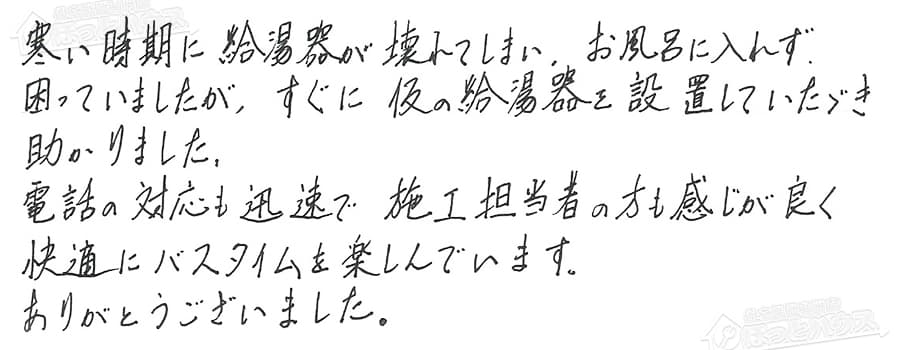 寒い時期に給湯器が壊れてしまい、お風呂に入れず、
困っていましたが、すぐに仮の給湯器を設置していただき
助かりました。
電話の対応も迅速で施工担当者の方も感じが良く
快適にバスタイムを楽しんでいます。
ありがとうございました。